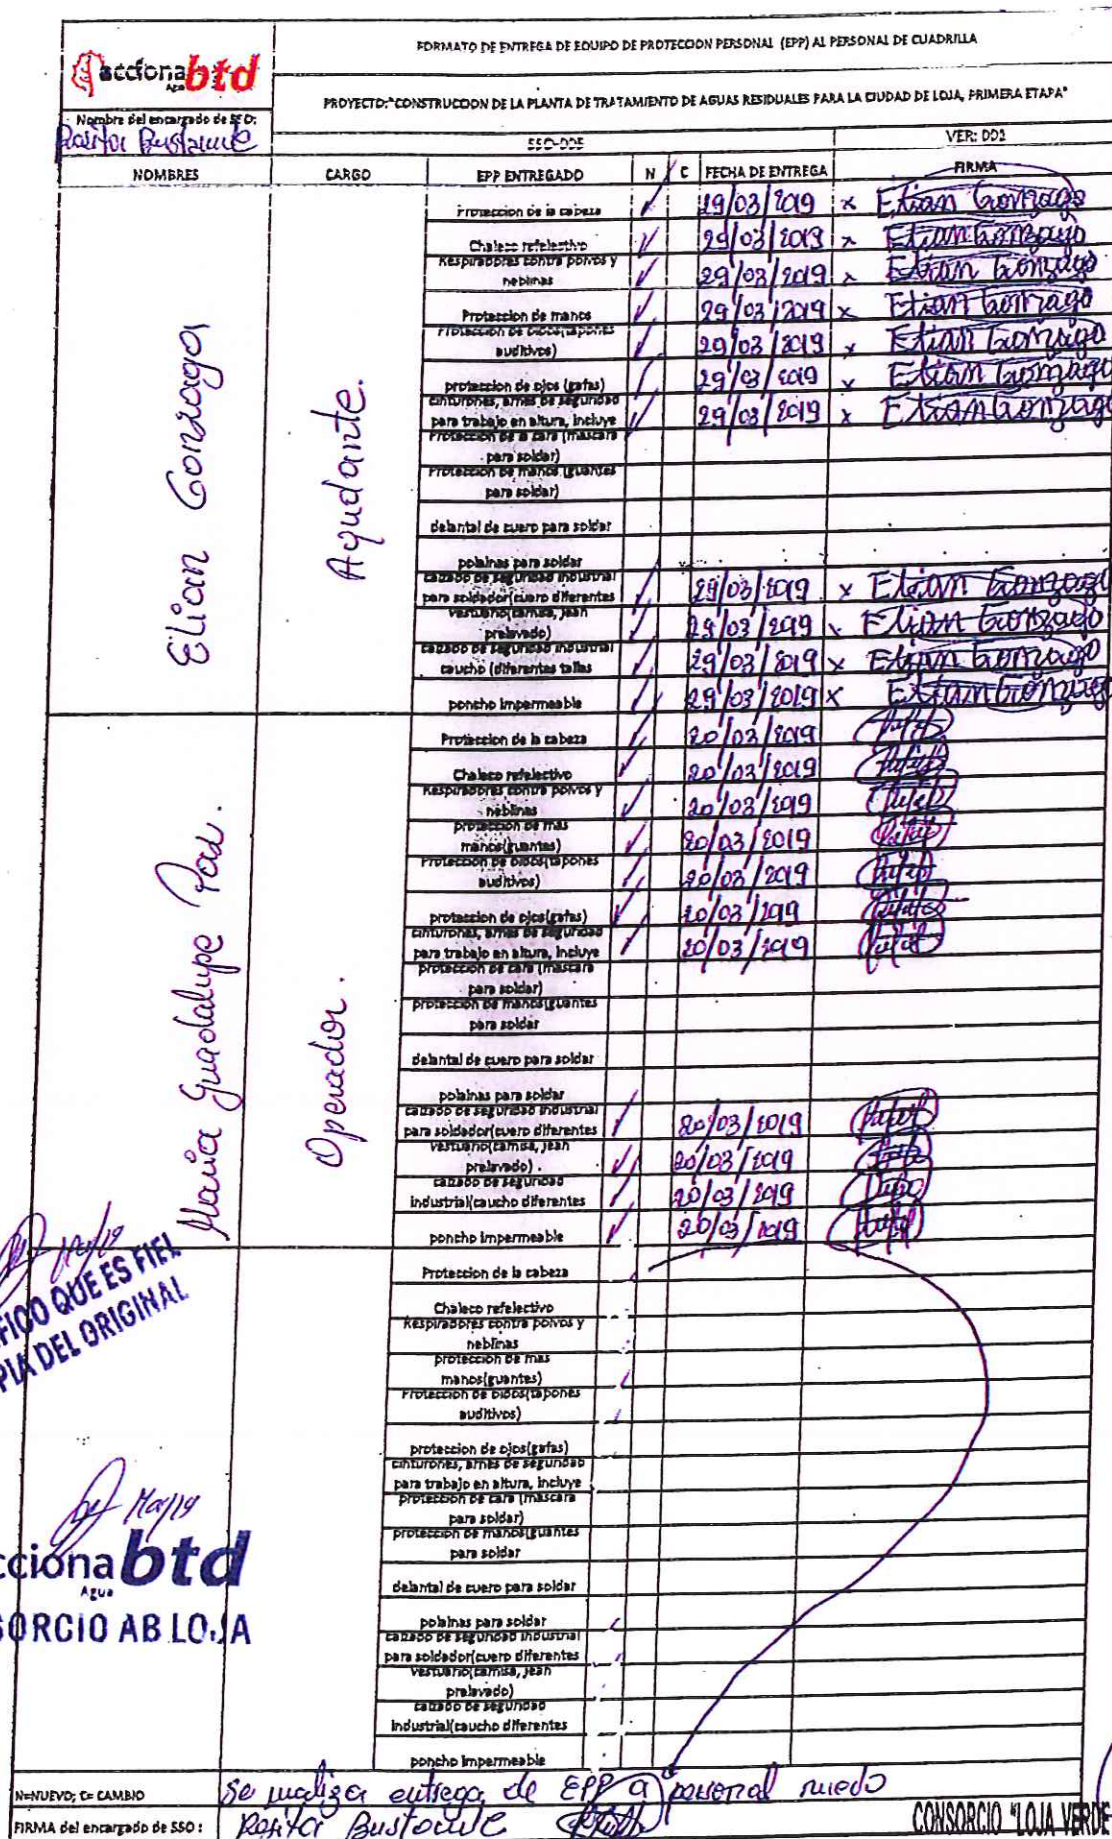 FORMATO DE ENTREGA DE EQUIPO DE PROTECCION PERSONAL (EPP) AL PERSONAL DE CUADRILLA
acciona btd
Agua
PROYECTO:"CONSTRUCCION DE LA PLANTA DE TRATAMIENTO DE AGUAS RESIDUALES PARA LA CIUDAD DE LOJA, PRIMERA ETAPA"
Nombre del encargado de SSO:
Rosita Bustamante
SSO-005 VER: 002
NOMBRES CARGO EPP ENTREGADO N C FECHA DE ENTREGA FIRMA
Elian Gonzaga
Ayudante.
Proteccion de la cabeza ✓ 29/03/2019 x Elian Gonzaga
Chaleco refelectivo ✓ 29/03/2019 x Elian Gonzaga
Respiradores contra polvos y neblinas ✓ 29/03/2019 x Elian Gonzaga
Proteccion de manos ✓ 29/03/2019 x Elian Gonzaga
Proteccion de oidos(tapones auditivos) ✓ 29/03/2019 x Elian Gonzaga
proteccion de ojos (gafas) ✓ 29/03/2019 x Elian Gonzaga
cinturones, arnes de seguridad para trabajo en altura, incluye ✓ 29/03/2019 x Elian Gonzaga
Proteccion de la cara (mascara para soldar)
Proteccion de manos (guantes para soldar)
delantal de cuero para soldar
polainas para soldar
calzado de seguridad industrial para soldador(cuero diferentes ✓ 29/03/2019 x Elian Gonzaga
vestuario(camisa, jean prelavado) ✓ 29/03/2019 x Elian Gonzaga
calzado de seguridad industrial caucho (diferentes tallas ✓ 29/03/2019 x Elian Gonzaga
poncho impermeable ✓ 29/03/2019 x Elian Gonzaga
Maria Guadalupe
Operador.
Proteccion de la cabeza ✓ 20/03/2019
Chaleco refelectivo ✓ 20/03/2019
Respiradores contra polvos y neblinas ✓ 20/03/2019
proteccion de mas manos(guantes) ✓ 20/03/2019
Proteccion de oidos(tapones auditivos) ✓ 20/03/2019
proteccion de ojos(gafas) ✓ 20/03/2019
cinturones, arnes de seguridad para trabajo en altura, incluye ✓ 20/03/2019
proteccion de cara (mascara para soldar)
proteccion de manos(guantes para soldar
delantal de cuero para soldar
polainas para soldar
calzado de seguridad industrial para soldador(cuero diferentes ✓ 20/03/2019
vestuario(camisa, jean prelavado) . ✓ 20/03/2019
calzado de seguridad industrial(caucho diferentes ✓ 20/03/2019
poncho impermeable ✓ 20/03/2019
Proteccion de la cabeza
Chaleco refelectivo
Respiradores contra polvos y neblinas
proteccion de mas manos(guantes)
Proteccion de oidos(tapones auditivos)
proteccion de ojos(gafas)
cinturones, arnes de seguridad para trabajo en altura, incluye
proteccion de cara (mascara para soldar)
proteccion de manos(guantes para soldar
delantal de cuero para soldar
polainas para soldar
calzado de seguridad industrial para soldador(cuero diferentes
vestuario(camisa, jean prelavado)
calzado de seguridad industrial(caucho diferentes
poncho impermeable
FICO QUE ES FIEL
PIA DEL ORIGINAL
May/19
cciona btd
Agua
SORCIO AB LOJA
N=NUEVO; C= CAMBIO Se realiza entrega de EPP a personal nuevo
FIRMA del encargado de SSO: Rosita Bustamante
CONSORCIO "LOJA VERDE